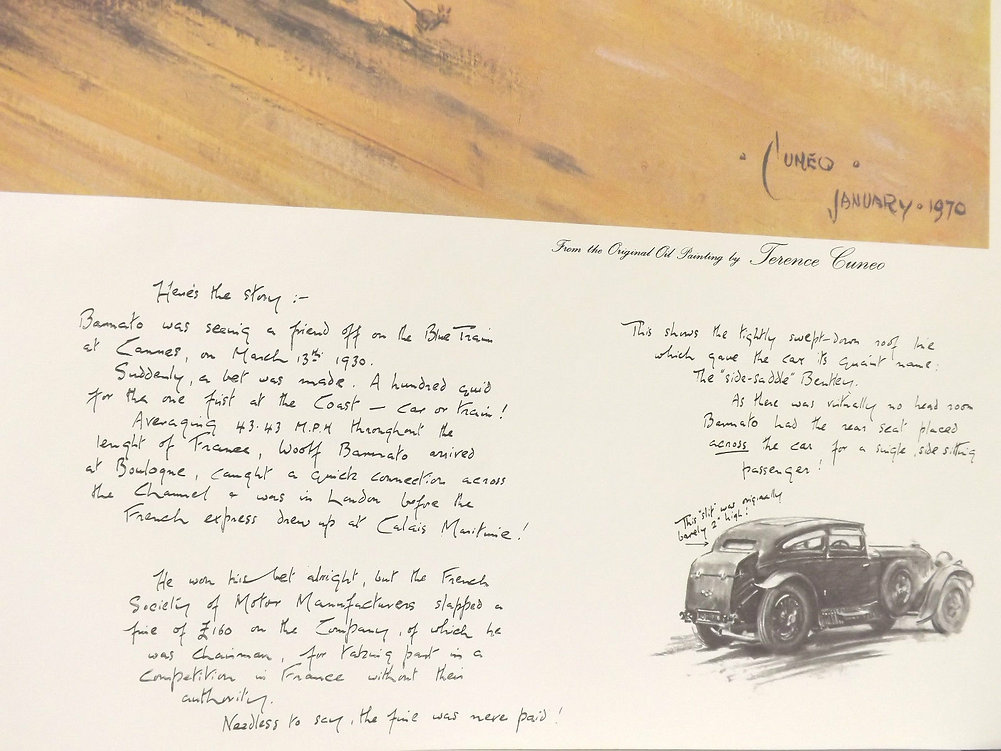 · CUNEO ·
JANUARY · 1970
From the Original Oil Painting by Terence Cuneo
Here's the story :-
Barnato was seeing a friend off on the Blue Train
at Cannes, on March 13th 1930.
Suddenly, a bet was made. A hundred quid
for the one first at the Coast — car or train!
Averaging 43.43 M.P.H throughout the
lenght of France, Woolf Barnato arrived
at Boulogne, caught a quick connection across
the Channel & was in London before the
French express drew up at Calais Maritime!
He won his bet alright, but the French
Society of Motor Manufacturers slapped a
fine of £160 on the Company, of which he
was Chairman, for taking part in a
Competition in France without their
authority.
Needless to say, the fine was never paid!
This shows the tightly swept-down roof line
which gave the car its quaint name:
The "side-saddle" Bentley.
As there was virtually no head room
Barnato had the rear seat placed
across the car for a single, side sitting
passenger!
This "slit" was originally
barely 2" high!